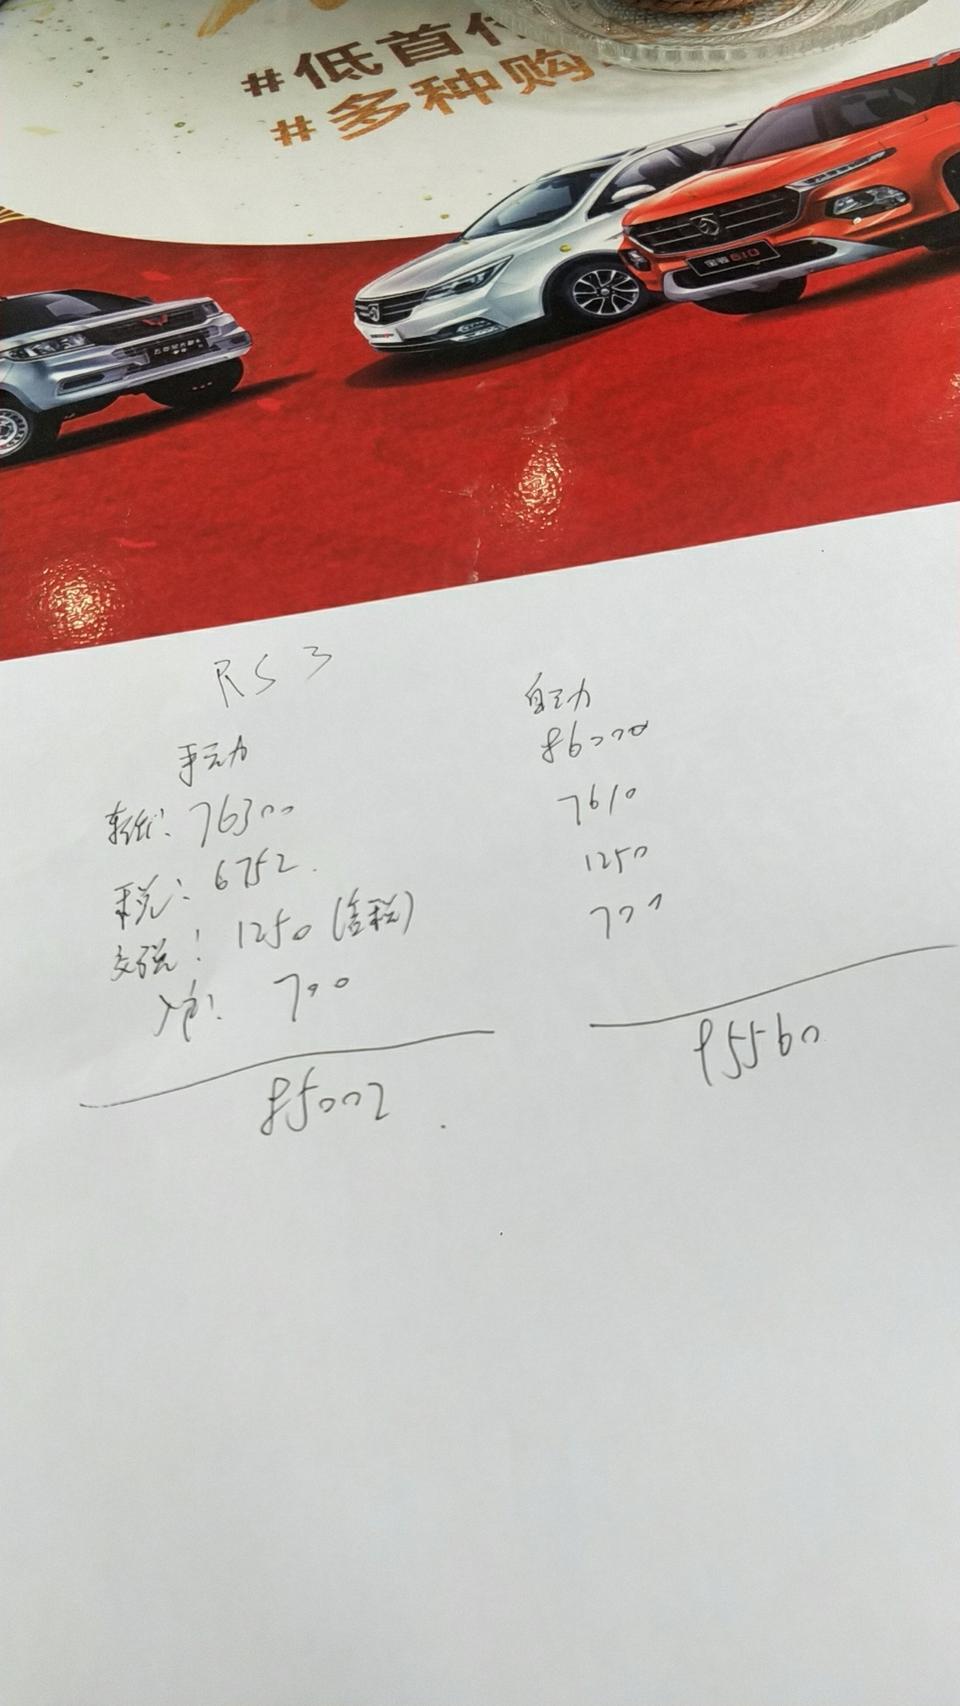 #低首付
#多种购
宝骏510
RS3
手动
车价: 76300
税: 6752.
交强: 1250 (含税)
上户: 700
85002
自动
86000
7610
1250
700
95560